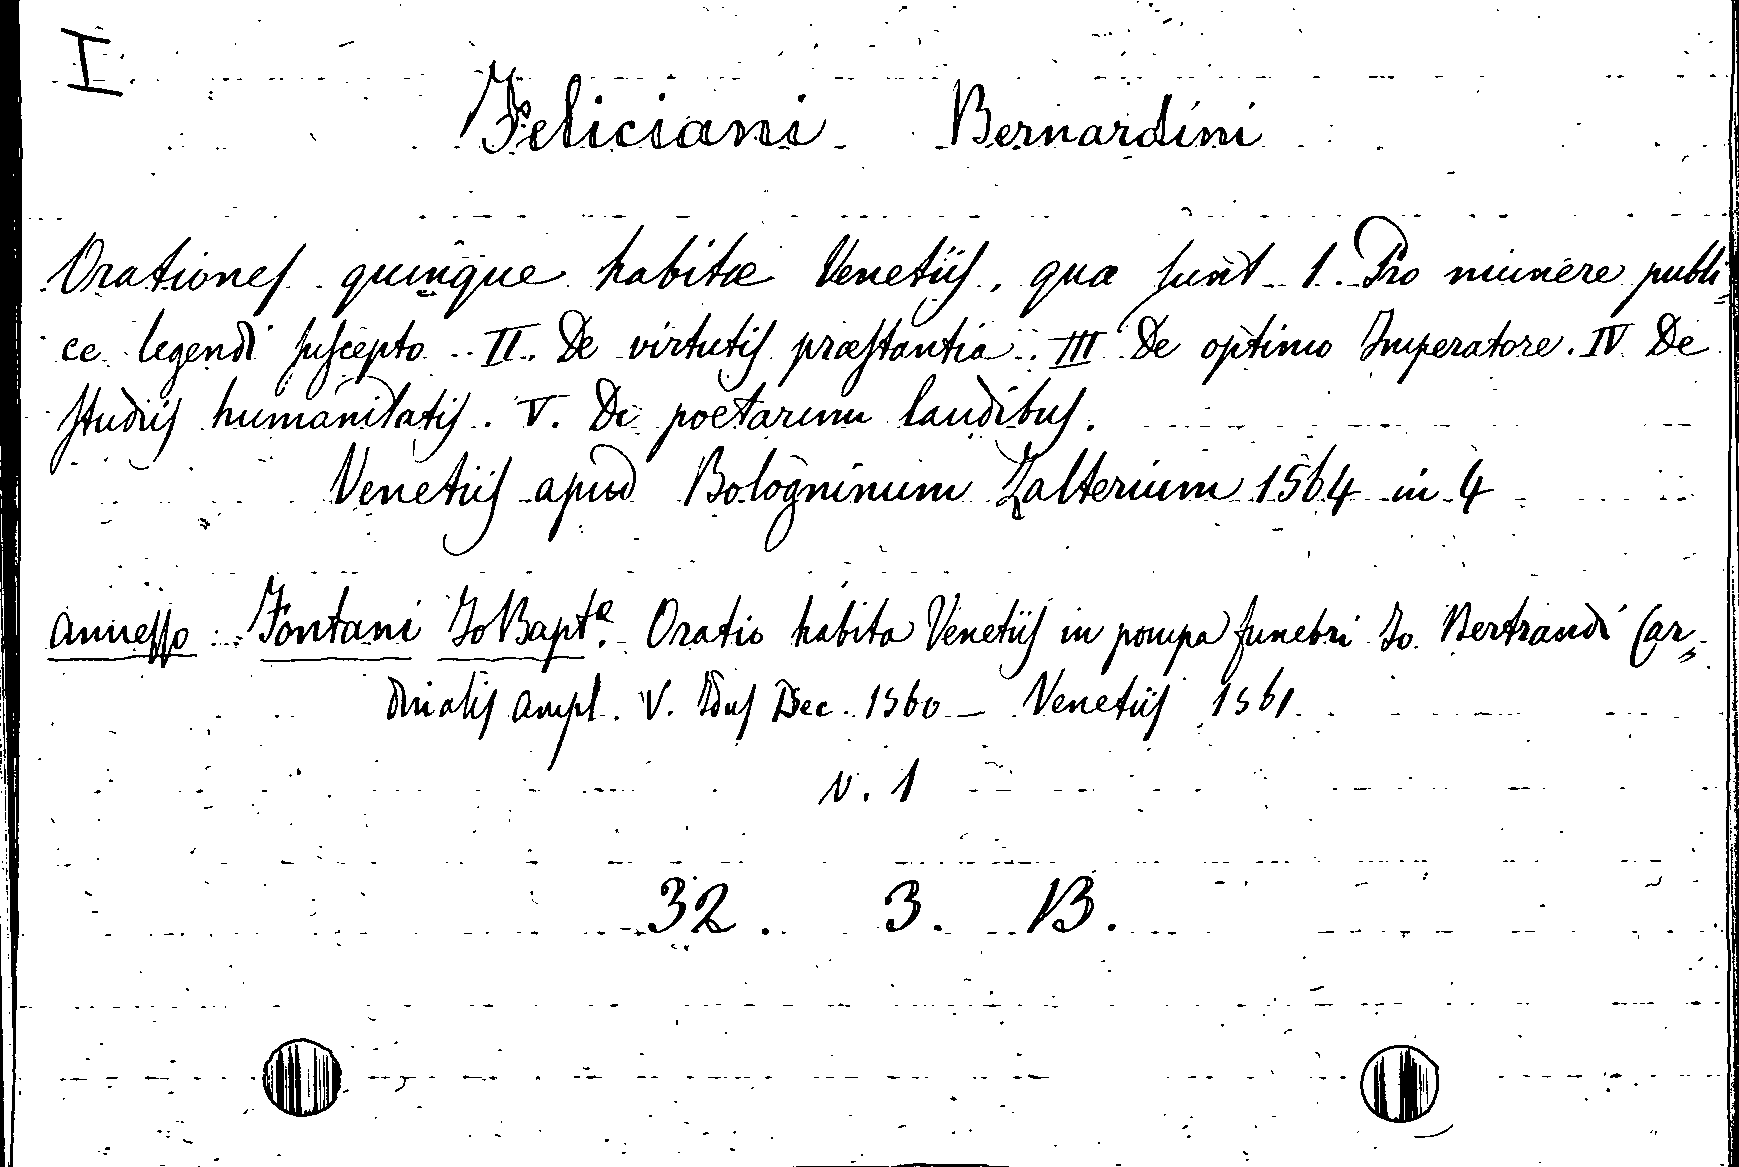 I.
Feliciani Bernardini
Orationes quinque habitæ Venetiis, quæ sunt 1. Pro munere publi=
ce legendi suscepto. II. De virtutis præstantia. III De optimo Imperatore. IV De
studiis humanitatis. V. De poetarum laudibus.
Venetiis apud Bologninum Zalterium 1564 in 4
annesso: Fontani Jo Bapt.ᵃ Oratio habita Venetiis in pompa funebri Jo. Bertrandi Car=
dinalis ampl. V. Idus Dec. 1560 – Venetiis 1561
N. 1
32. 3. B.